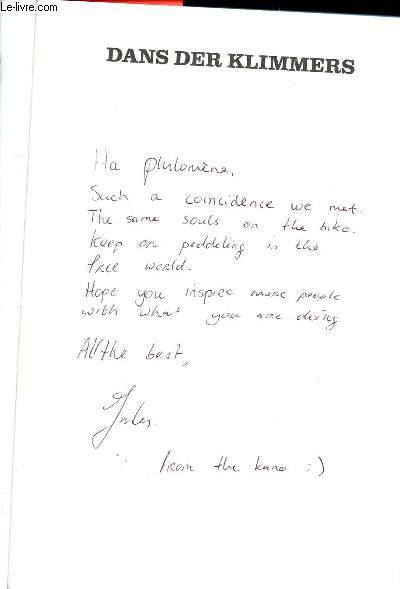 Le-Livre.com
DANS DER KLIMMERS
Ha Philomène,
Such a coincidence we met.
The same souls on the bike.
Keep on peddeling in the
free world.
Hope you inspree more people
with what you are doing
All the best,
Jules.
from the kano :)